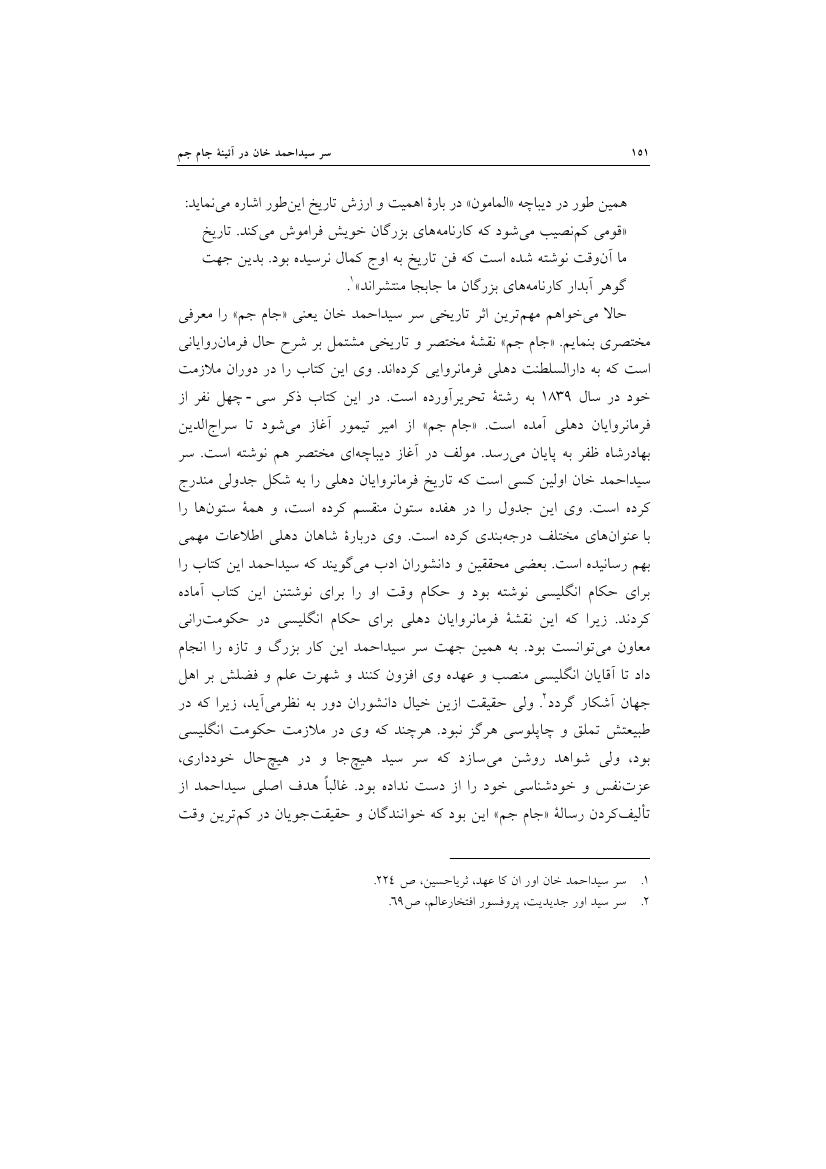 ۱۵۱ سر سیداحمد خان در آئینهٔ جام جم
همین طور در دیباچه «المامون» در بارهٔ اهمیت و ارزش تاریخ این‌طور اشاره می‌نماید:
«قومی کم‌نصیب می‌شود که کارنامه‌های بزرگان خویش فراموش می‌کند. تاریخ
ما آن‌وقت نوشته شده است که فن تاریخ به اوج کمال نرسیده بود. بدین جهت
گوهر آبدار کارنامه‌های بزرگان ما جابجا منتشراند»۱.
حالا می‌خواهم مهم‌ترین اثر تاریخی سر سیداحمد خان یعنی «جام جم» را معرفی
مختصری بنمایم. «جام جم» نقشهٔ مختصر و تاریخی مشتمل بر شرح حال فرمان‌روایانی
است که به دارالسلطنت دهلی فرمانروایی کرده‌اند. وی این کتاب را در دوران ملازمت
خود در سال ۱۸۳۹ به رشتهٔ تحریرآورده است. در این کتاب ذکر سی - چهل نفر از
فرمانروایان دهلی آمده است. «جام جم» از امیر تیمور آغاز می‌شود تا سراج‌الدین
بهادرشاه ظفر به پایان می‌رسد. مولف در آغاز دیباچه‌ای مختصر هم نوشته است. سر
سیداحمد خان اولین کسی است که تاریخ فرمانروایان دهلی را به شکل جدولی مندرج
کرده است. وی این جدول را در هفده ستون منقسم کرده است، و همهٔ ستون‌ها را
با عنوان‌های مختلف درجه‌بندی کرده است. وی دربارهٔ شاهان دهلی اطلاعات مهمی
بهم رسانیده است. بعضی محققین و دانشوران ادب می‌گویند که سیداحمد این کتاب را
برای حکام انگلیسی نوشته بود و حکام وقت او را برای نوشتنن این کتاب آماده
کردند. زیرا که این نقشهٔ فرمانروایان دهلی برای حکام انگلیسی در حکومت‌رانی
معاون می‌توانست بود. به همین جهت سر سیداحمد این کار بزرگ و تازه را انجام
داد تا آقایان انگلیسی منصب و عهده وی افزون کنند و شهرت علم و فضلش بر اهل
جهان آشکار گردد۲. ولی حقیقت ازین خیال دانشوران دور به نظرمی‌آید، زیرا که در
طبیعتش تملق و چاپلوسی هرگز نبود. هرچند که وی در ملازمت حکومت انگلیسی
بود، ولی شواهد روشن می‌سازد که سر سید هیچ‌جا و در هیچ‌حال خودداری،
عزت‌نفس و خودشناسی خود را از دست نداده بود. غالباً هدف اصلی سیداحمد از
تألیف‌کردن رسالهٔ «جام جم» این بود که خوانندگان و حقیقت‌جویان در کم‌ترین وقت
۱. سر سیداحمد خان اور ان کا عهد، ثریاحسین، ص ۲۲٤.
۲. سر سید اور جدیدیت، پروفسور افتخارعالم، ص٦۹.